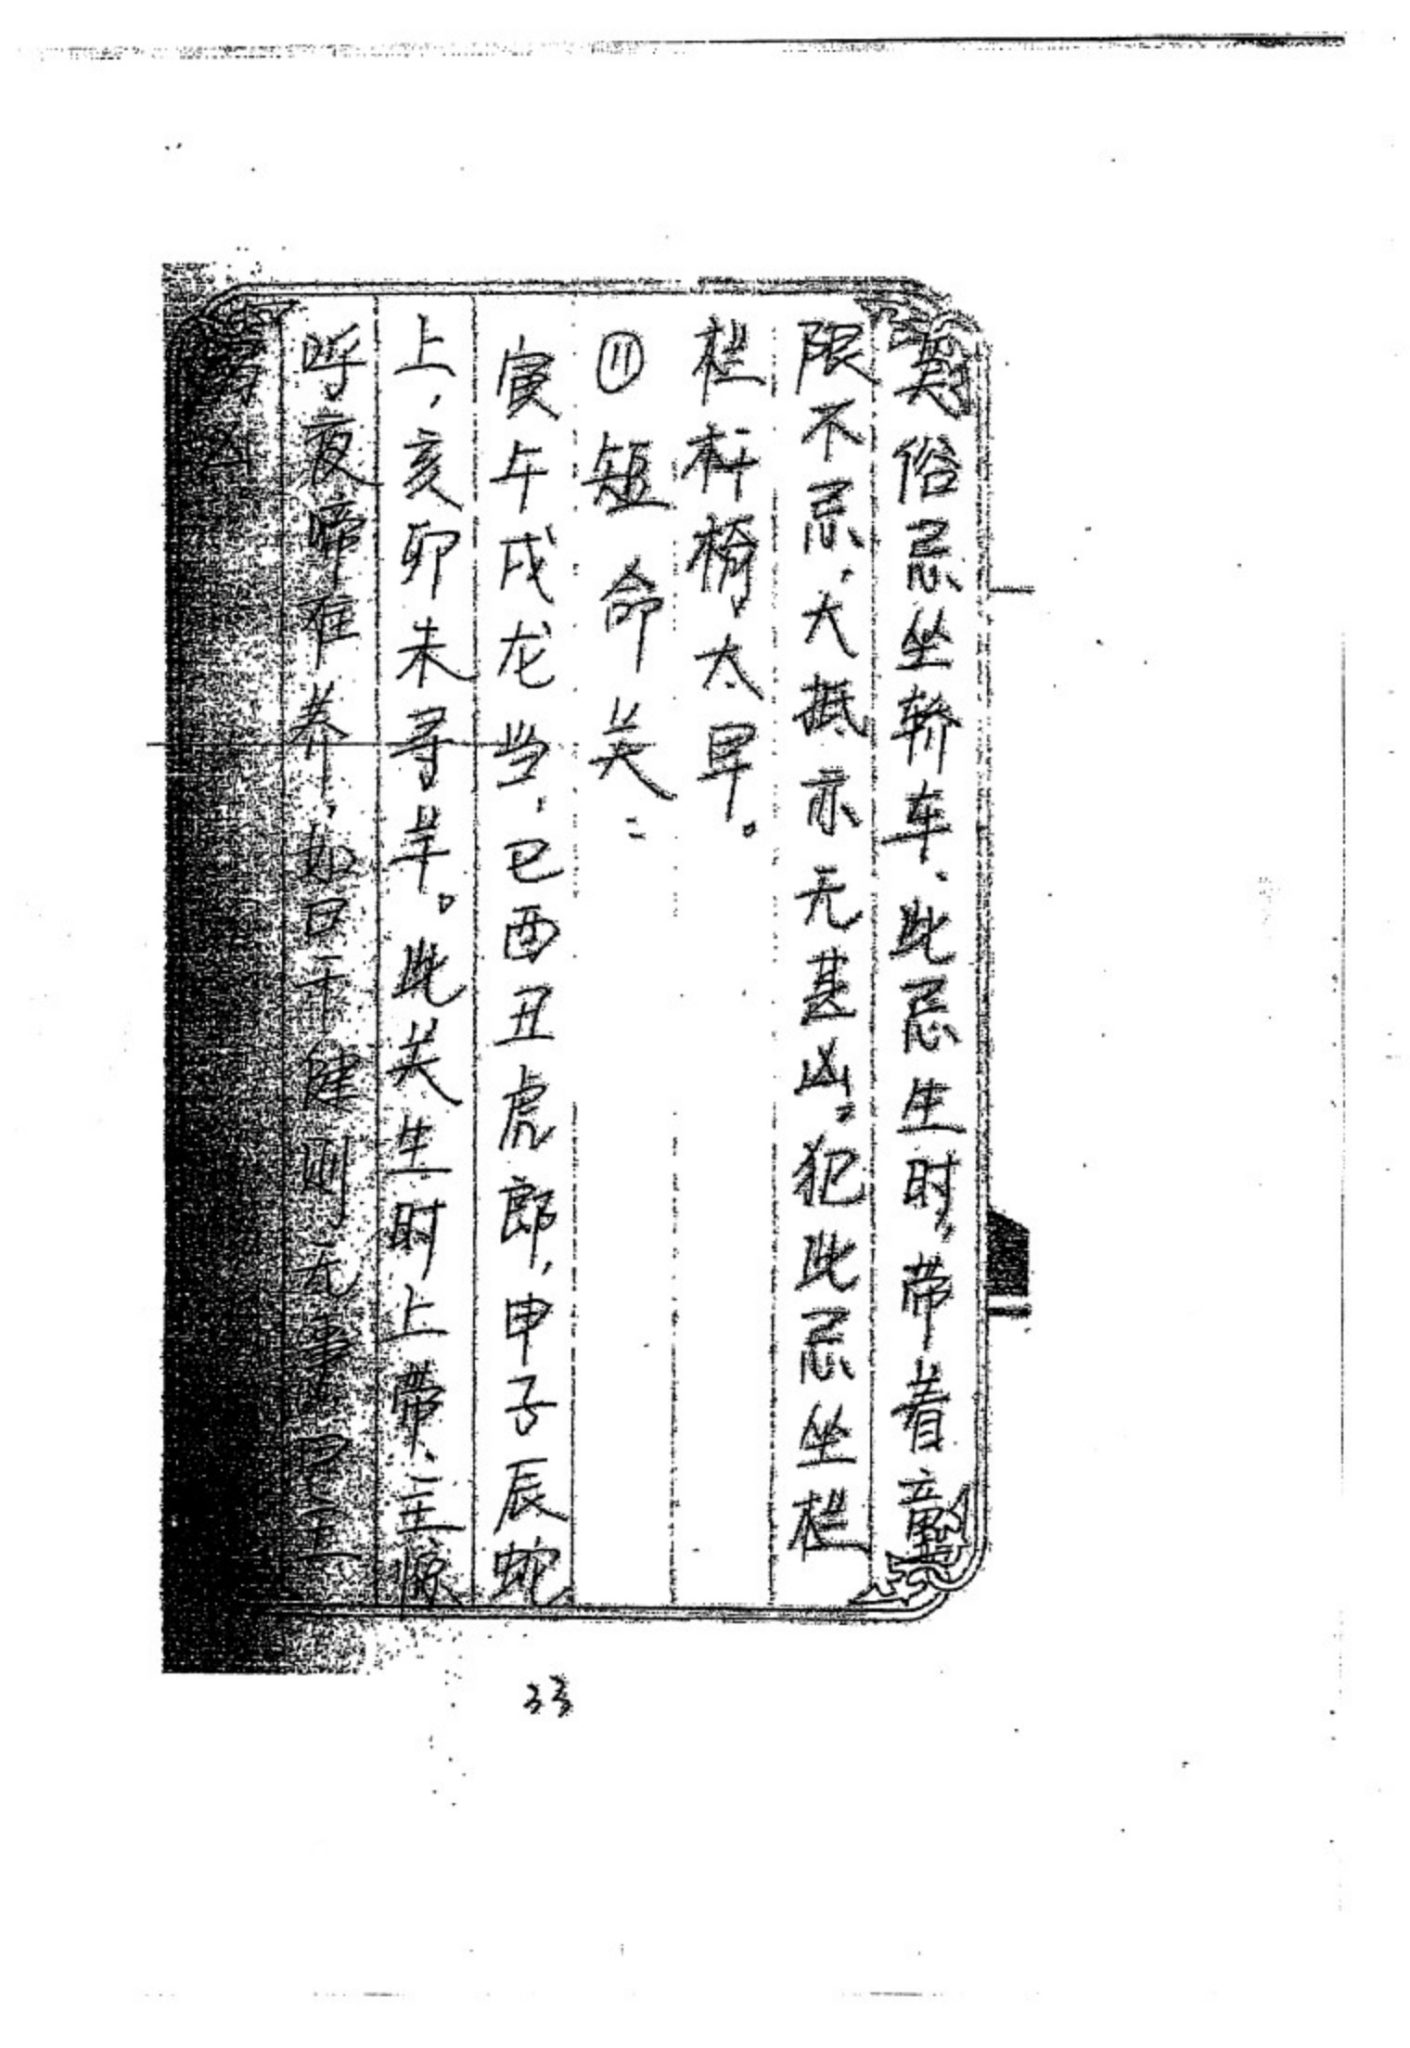 俗忌坐轿车、此忌生时，带着童
限不忌、大抵亦无甚凶。犯此忌坐栏
栏杆椅太早。
⑪短命关：
寅午戌龙当，巳酉丑虎郎，申子辰蛇
上，亥卯未寻羊。此关生时上带、主惊
呼夜啼难养，如日干健则无事
凶
33